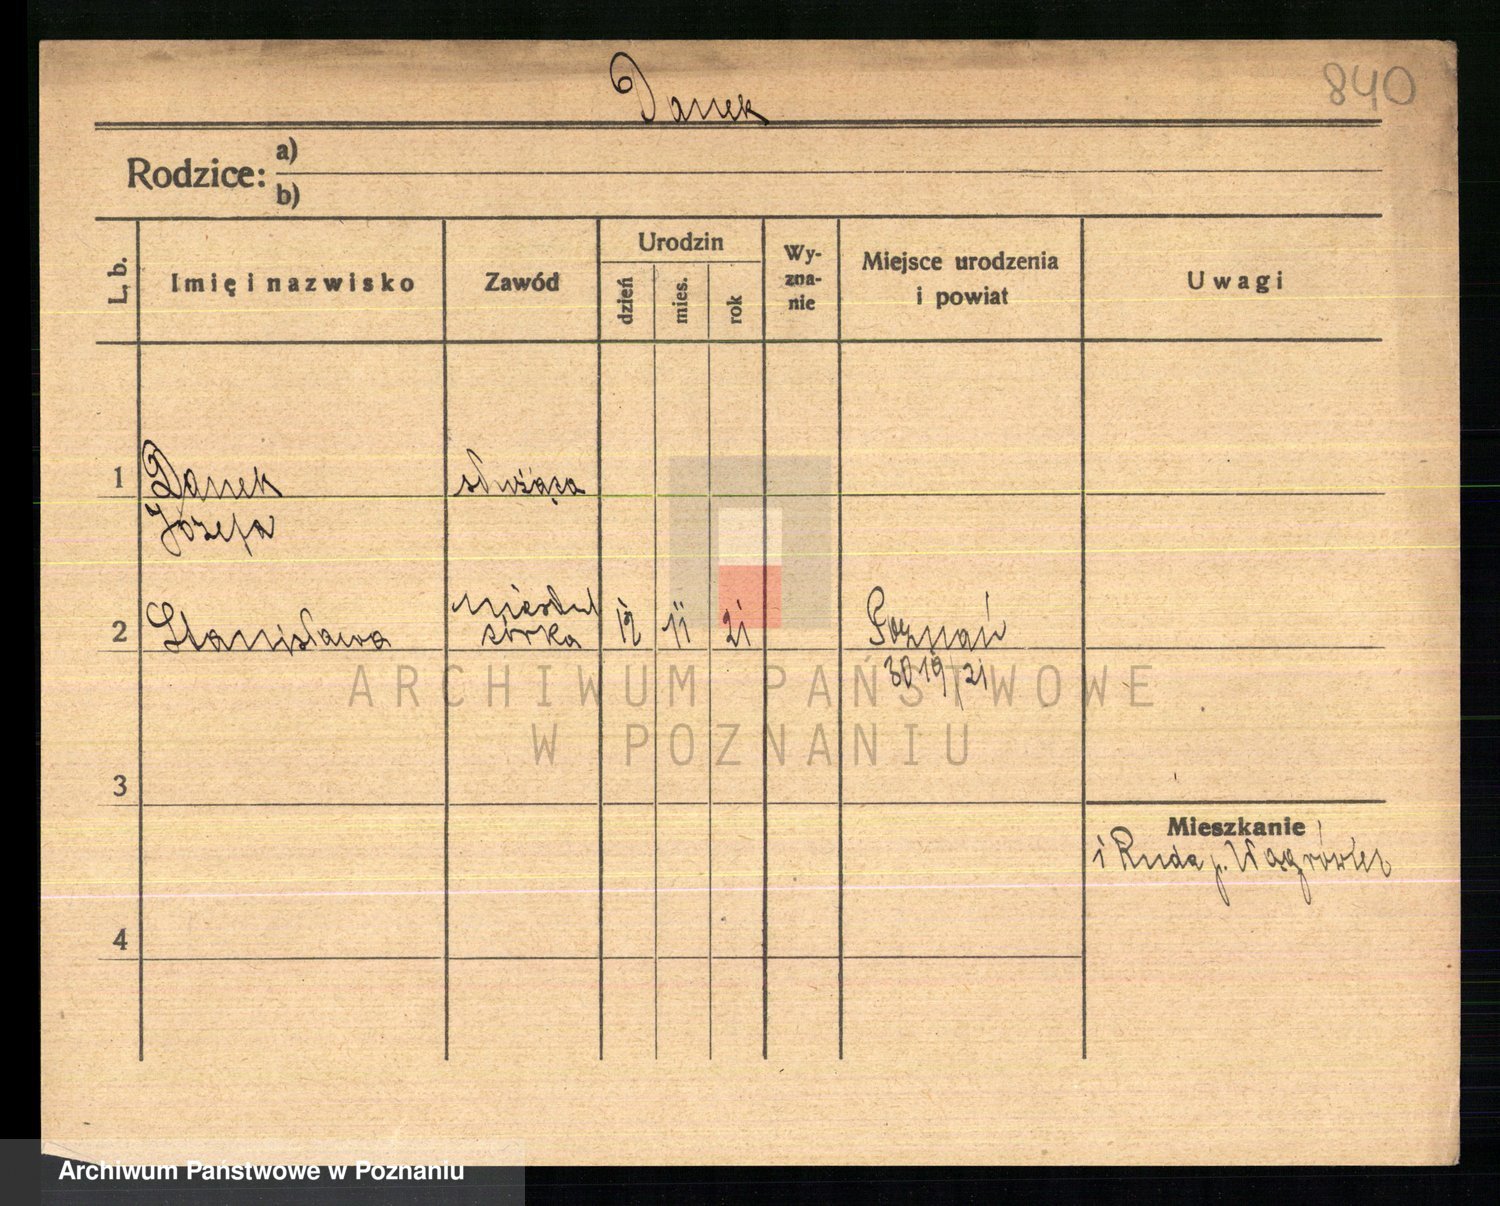 840
Danek
Rodzice: a)
b)
L. b.
Imię i nazwisko
Zawód
Urodzin
dzień
mies.
rok
Wy-
zna-
nie
Miejsce urodzenia
i powiat
Uwagi
1 Danek służąca
Józefa
nieślub
2 Stanisława córka 12 11 21 Poznań
3019/21
ARCHIWUM PAŃSTWOWE
W POZNANIU
3
Mieszkanie
i Ruda p. Wągrówiec
4
Archiwum Państwowe w Poznaniu